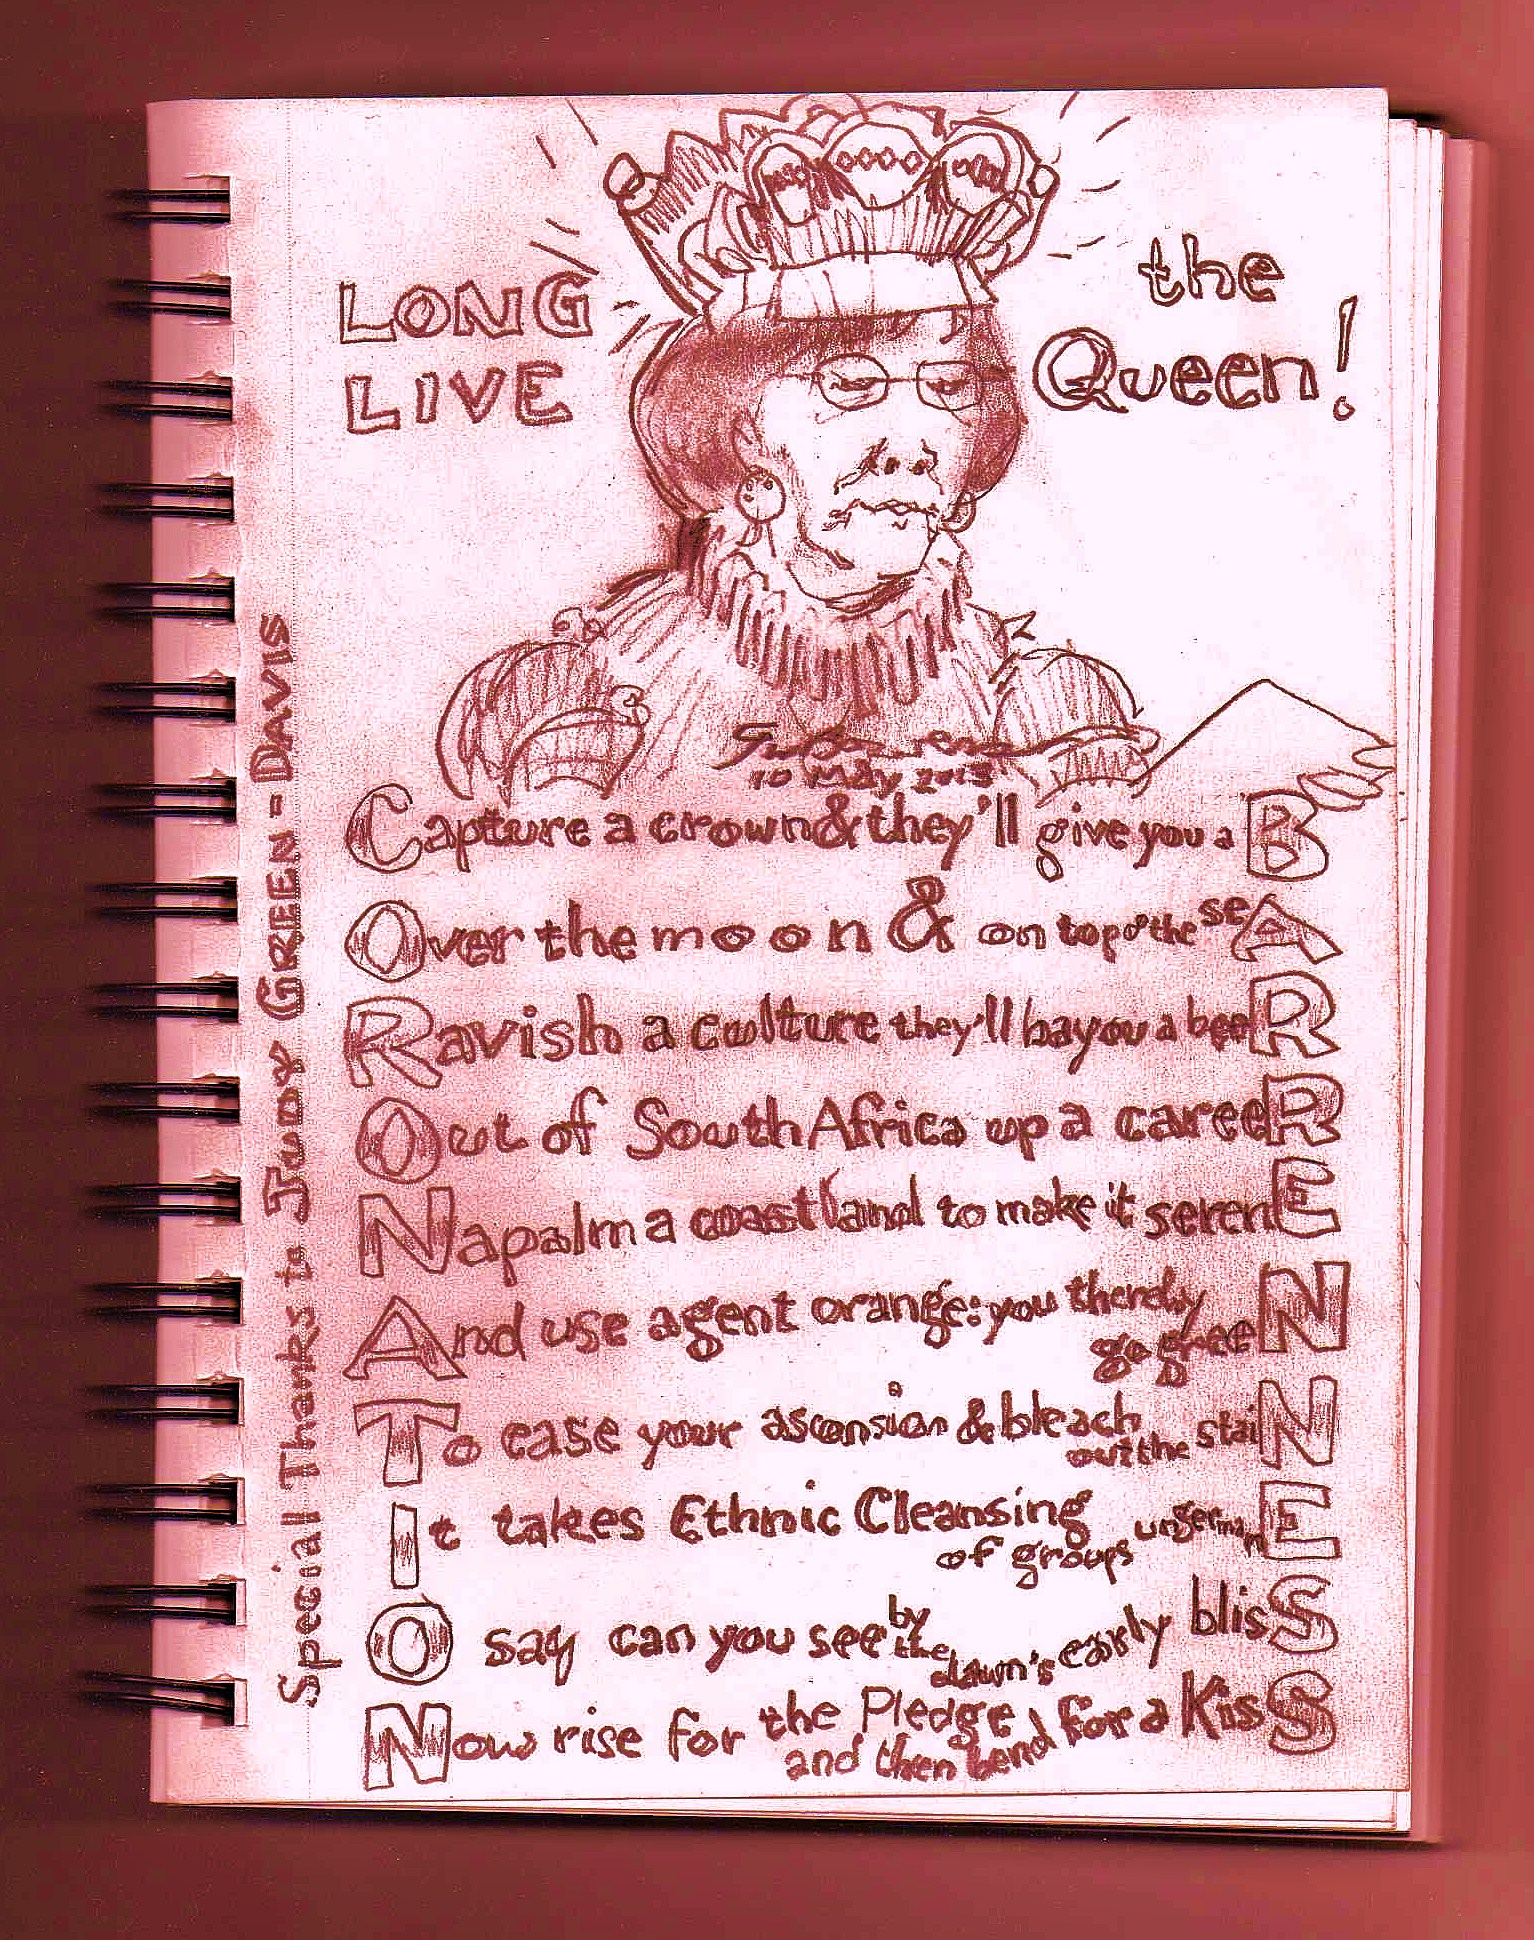 LONG
LIVE
the
Queen!
10 May 2013
Capture a crown & they'll give you a B
Over the moon & on top o' the seA
Ravish a culture they'll bayou a beeR
Out of South Africa up a careeR
Napalm a coastland to make it serenE
And use agent orange: you thereby go greeN
To ease your ascension & bleach out the staiN
It takes Ethnic Cleansing of groups ungermanE
O say can you see by the dawn's early blisS
Now rise for the Pledge and then bend for a KisS
Special Thanks to Judy GREEN-DAVIS